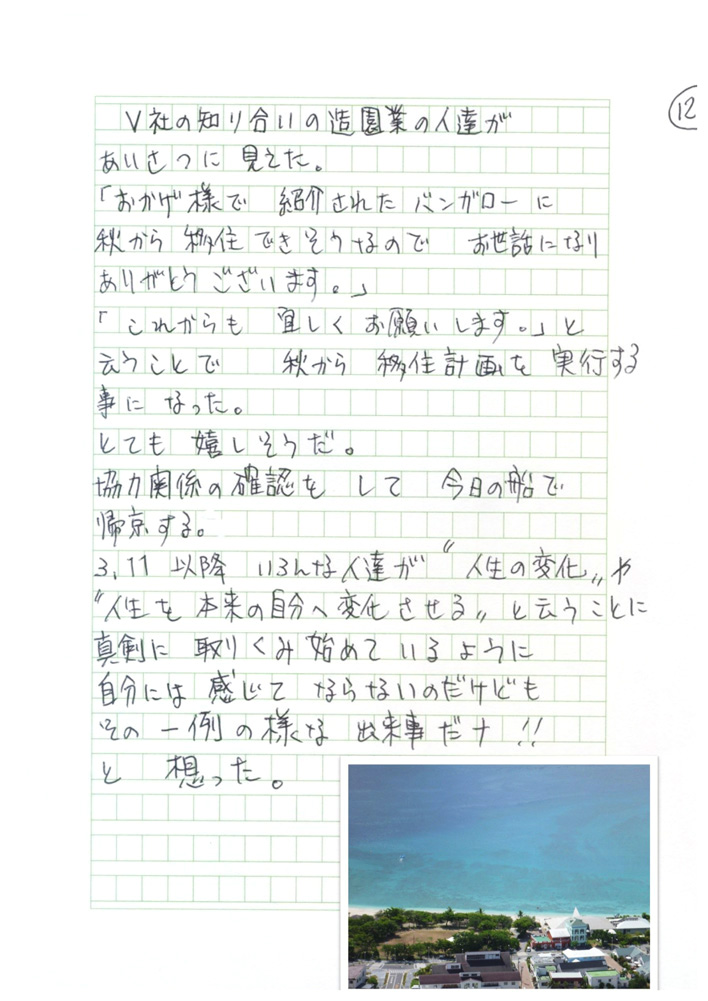 12
V社の知り合いの造園業の人達が
あいさつに 見えた。
「おかげ様で 紹介された バンガローに
秋から 移住できそうなので お世話になり
ありがとう ございます。」
「これからも 宜しく お願いします。」と
云うことで 秋から 移住計画を 実行する
事に なった。
とても 嬉しそうだ。
協力関係の確認を して 今日の船で
帰京する。
3.11 以降 いろんな人達が〝人生の変化〟や
〝人生を 本来の自分へ変化させる〟と云うことに
真剣に 取りくみ始めているように
自分には 感じて ならないのだけども
その 一例の様な 出来事だナ !!
と 想った。